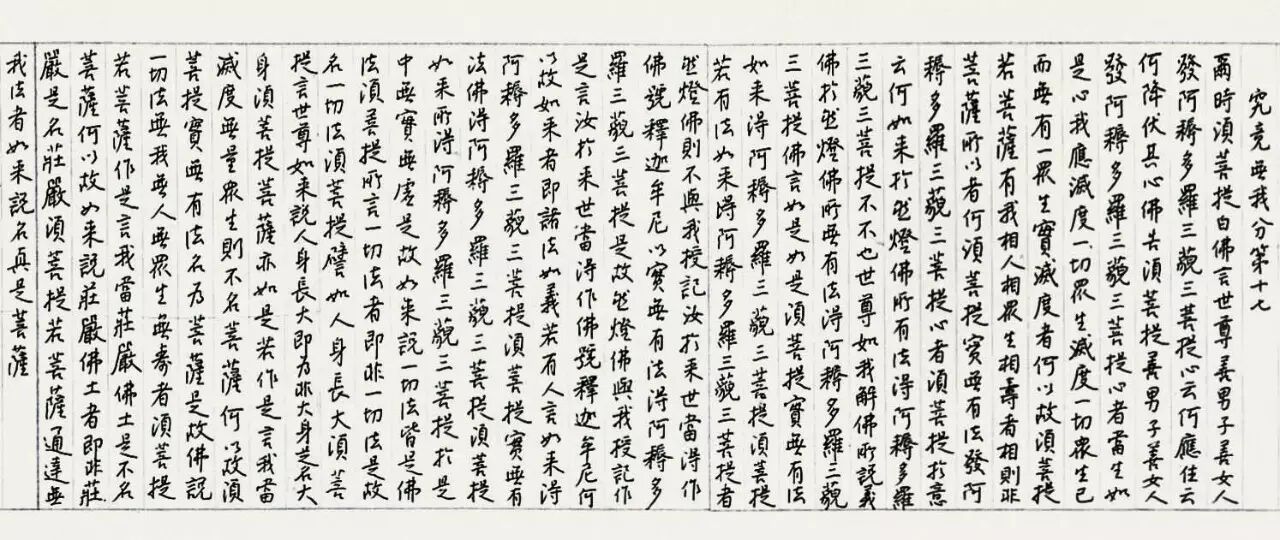 究竟無我分第十七
爾時須菩提白佛言世尊善男子善女人
發阿耨多羅三藐三菩提心云何應住云
何降伏其心佛告須菩提善男子善女人
發阿耨多羅三藐三菩提心者當生如
是心我應滅度一切眾生滅度一切眾生已
而無有一眾生實滅度者何以故須菩提
若菩薩有我相人相眾生相壽者相則非
菩薩所以者何須菩提實無有法發阿
耨多羅三藐三菩提心者須菩提於意
云何如来於然燈佛所有法得阿耨多羅
三藐三菩提不不也世尊如我解佛所說義
佛於然燈佛所無有法得阿耨多羅三藐
三菩提佛言如是如是須菩提實無有法
如来得阿耨多羅三藐三菩提須菩提
若有法如来得阿耨多羅三藐三菩提者
然燈佛則不與我授記汝於来世當得作
佛號釋迦牟尼以實無有法得阿耨多
羅三藐三菩提是故然燈佛與我授記作
是言汝於来世當得作佛號釋迦牟尼何
以故如来者即諸法如義若有人言如来得
阿耨多羅三藐三菩提須菩提實無有
法佛得阿耨多羅三藐三菩提須菩提
如来所得阿耨多羅三藐三菩提於是
中無實無虛是故如来說一切法皆是佛
法須菩提所言一切法者即非一切法是故
名一切法須菩提譬如人身長大須菩
提言世尊如来說人身長大即為非大身是名大
身須菩提菩薩亦如是若作是言我當
滅度無量眾生則不名菩薩何以故須
菩提實無有法名為菩薩是故佛說
一切法無我無人無眾生無壽者須菩提
若菩薩作是言我當莊嚴佛土是不名
菩薩何以故如来說莊嚴佛土者即非莊
嚴是名莊嚴須菩提若菩薩通達無
我法者如来說名真是菩薩